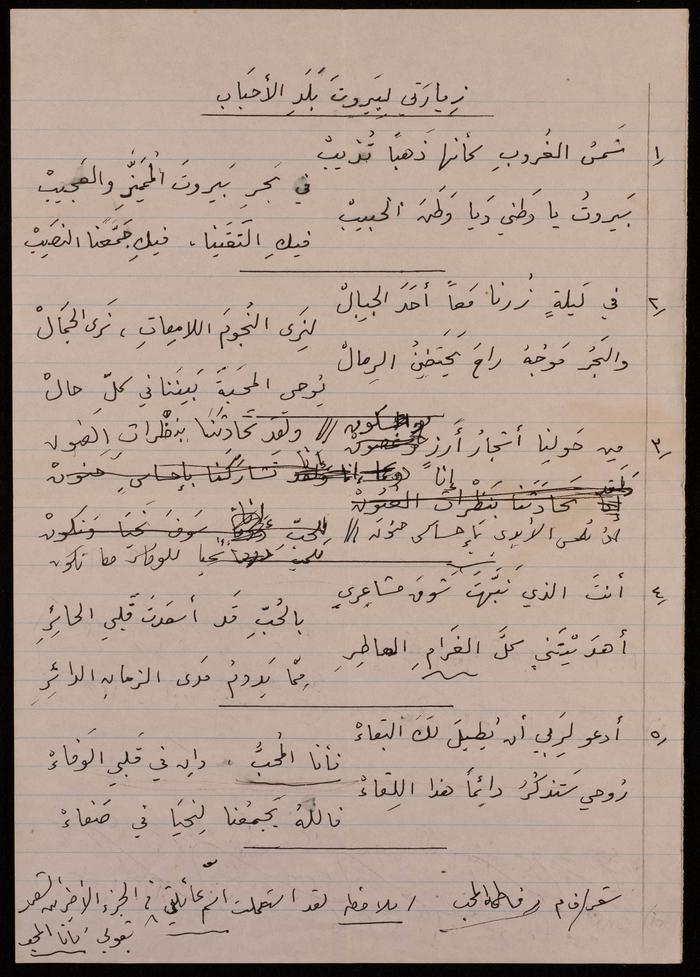 زيارتي لِبَيروتَ بَلَدِ الأحبَاب
١/ شَمسُ الغُروبِ كأنها ذَهبًا تُذيبْ
في بَحرِ بَيروتَ المُمَيَّزِ والعَجيبْ
بَيروتُ يا وَطني وَيا وَطَنَ الحَبيبْ
فيكِ التَقَينا، فيكِ جَمَّعَنا النصَيبْ
٢/ في لَيلةٍ زُرنا مَعاً أحَدَ الجِبالْ
لِنَرَى النُجومَ اللامِعاتِ، نَرى الجَمَالْ
والبَحرُ مَوجُهُ راحَ يَحتَضِنُ الرِمالْ
يُوحي المحَبَةَ بَينَنا في كلّ حالْ
٣/ مِن حَولِنا أشجارُ أَرزٍ وغصون // ولَقَد تحادَثنَا بِنظْراتِ العُيون
إنا تشارَكنا بإحساسٍ حنونْ
تحادَثنا بنَظْراتِ العُيُونْ
الأيدي بإحساسٍ حنون // للحبّ سَوفَ نَحيَا وَنكونْ
نحيا للوفاء
٤/ أنتَ الذي نَبَّهَتَ شَوقَ مشاعِري
بالحُبّ قَد أسعَدتَ قَلبي الحائِرِ
أهدَيْتَني كلَّ الغَرامِ العاطِرِ
مِمّا يَدومُ مَدى الزمانِ الدائِرِ
٥/ أدعو لِرَبي أن يُطيلَ لَكَ البَقاءْ
فأنا المُحبُّ، وإن في قَلبي الوَفاءْ
رُوحي سَتَذكُرُ دائِماً هذا اللِقاءْ
فاللهُ يَجمَعُنا لِنَحيَا في صَفاءْ
شعر/ فاطمة المحب / ملاحظه لقد استعملت اسم عائلتي في الجزء الأخير من الشعر
بقولي "فأنا المحب